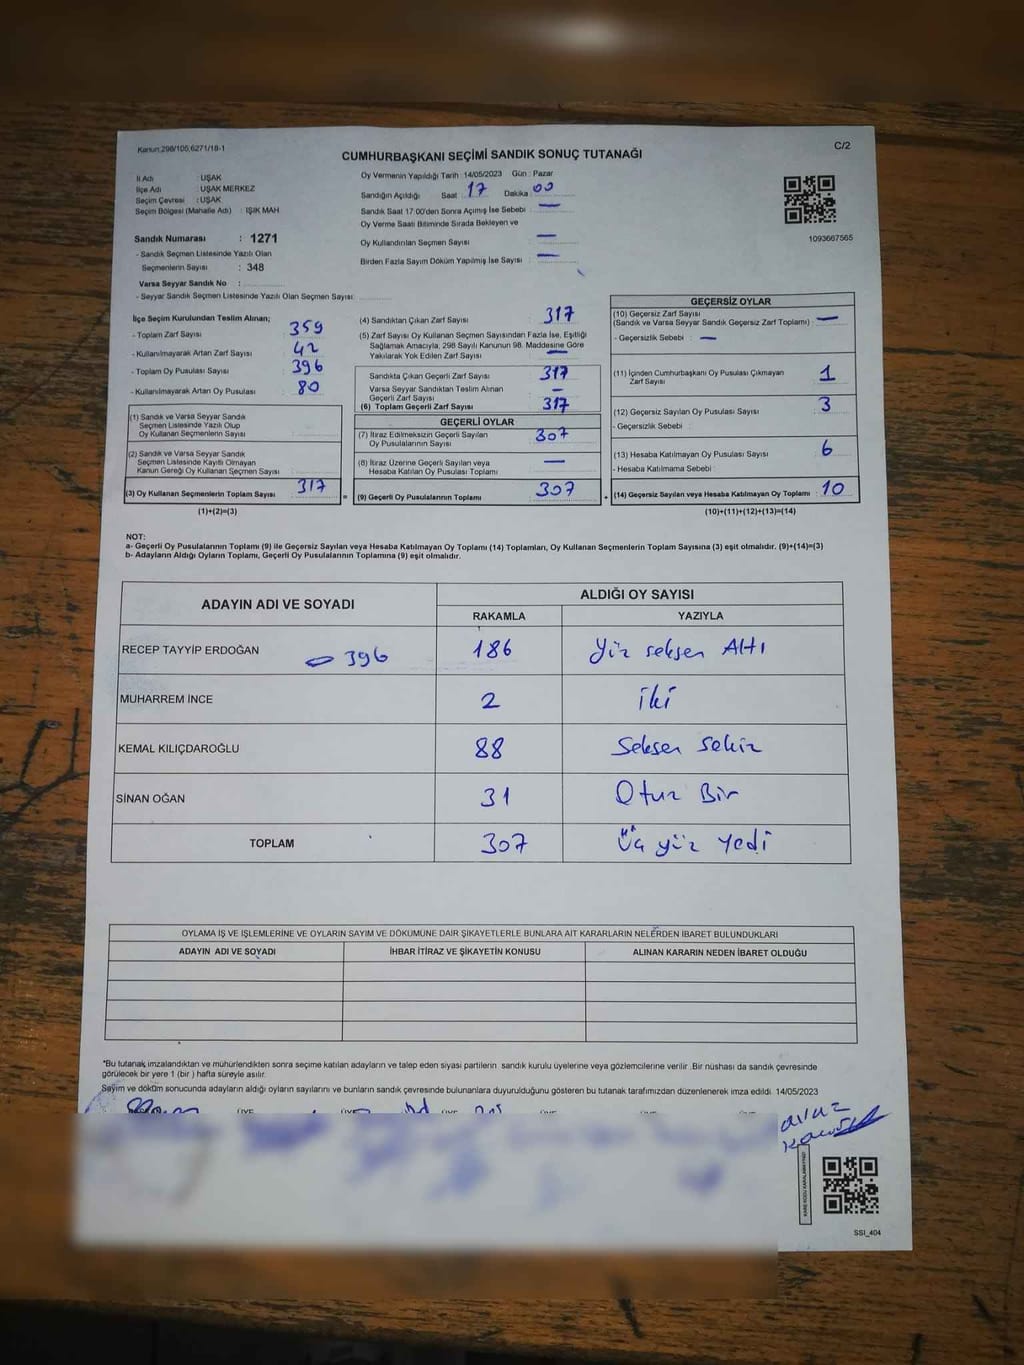 Kanun:298/105,6271/18-1
C/2
CUMHURBAŞKANI SEÇİMİ SANDIK SONUÇ TUTANAĞI
İl Adı : UŞAK
İlçe Adı : UŞAK MERKEZ
Seçim Çevresi : UŞAK
Seçim Bölgesi (Mahalle Adı) : IŞIK MAH
Sandık Numarası : 1271
- Sandık Seçmen Listesinde Yazılı Olan
Seçmenlerin Sayısı : 348
Varsa Seyyar Sandık No :
- Seyyar Sandık Seçmen Listesinde Yazılı Olan Seçmen Sayısı:
Oy Vermenin Yapıldığı Tarih : 14/05/2023 Gün : Pazar
Sandığın Açıldığı Saat 17 Dakika 00
Sandık Saat 17:00'den Sonra Açımış İse Sebebi : —
Oy Verme Saati Bitiminde Sırada Bekleyen ve
Oy Kullandırılan Seçmen Sayısı : —
Birden Fazla Sayım Döküm Yapılmış İse Sayısı : —
1093667565
İlçe Seçim Kurulundan Teslim Alınan;
- Toplam Zarf Sayısı : 359
- Kullanılmayarak Artan Zarf Sayısı : 42
- Toplam Oy Pusulası Sayısı : 396
- Kullanılmayarak Artan Oy Pusulası : 80
(1) Sandık ve Varsa Seyyar Sandık
Seçmen Listesinde Yazılı Olup
Oy Kullanan Seçmenlerin Sayısı :
(2) Sandık ve Varsa Seyyar Sandık
Seçmen Listesinde Kayıtlı Olmayan
Kanun Gereği Oy Kullanan Seçmen Sayısı :
(3) Oy Kullanan Seçmenlerin Toplam Sayısı : 317
(1)+(2)=(3)
(4) Sandıktan Çıkan Zarf Sayısı : 317
(5) Zarf Sayısı Oy Kullanan Seçmen Sayısından Fazla İse, Eşitliği
Sağlamak Amacıyla, 298 Sayılı Kanunun 98. Maddesine Göre
Yakılarak Yok Edilen Zarf Sayısı : —
Sandıkta Çıkan Geçerli Zarf Sayısı : 317
Varsa Seyyar Sandıktan Teslim Alınan
Geçerli Zarf Sayısı : —
(6) Toplam Geçerli Zarf Sayısı : 317
GEÇERLİ OYLAR
(7) İtiraz Edilmeksizin Geçerli Sayılan
Oy Pusulalarının Sayısı : 307
(8) İtiraz Üzerine Geçerli Sayılan veya
Hesaba Katılan Oy Pusulası Toplamı : —
= (9) Geçerli Oy Pusulalarının Toplamı : 307
GEÇERSİZ OYLAR
(10) Geçersiz Zarf Sayısı
(Sandık ve Varsa Seyyar Sandık Geçersiz Zarf Toplamı) : —
- Geçersizlik Sebebi : —
(11) İçinden Cumhurbaşkanı Oy Pusulası Çıkmayan
Zarf Sayısı : 1
(12) Geçersiz Sayılan Oy Pusulası Sayısı : 3
- Geçersizlik Sebebi :
(13) Hesaba Katılmayan Oy Pusulası Sayısı : 6
- Hesaba Katılmama Sebebi :
+ (14) Geçersiz Sayılan veya Hesaba Katılmayan Oy Toplamı : 10
(10)+(11)+(12)+(13)=(14)
NOT:
a- Geçerli Oy Pusulalarının Toplamı (9) ile Geçersiz Sayılan veya Hesaba Katılmayan Oy Toplamı (14) Toplamları, Oy Kullanan Seçmenlerin Toplam Sayısına (3) eşit olmalıdır. (9)+(14)=(3)
b- Adayların Aldığı Oyların Toplamı, Geçerli Oy Pusulalarının Toplamına (9) eşit olmalıdır.
ADAYIN ADI VE SOYADI
ALDIĞI OY SAYISI
RAKAMLA YAZIYLA
RECEP TAYYİP ERDOĞAN 396 186 Yüz seksen Altı
MUHARREM İNCE 2 iki
KEMAL KILIÇDAROĞLU 88 Seksen Sekiz
SİNAN OĞAN 31 Otuz Bir
TOPLAM 307 Üç yüz yedi
OYLAMA İŞ VE İŞLEMLERİNE VE OYLARIN SAYIM VE DÖKÜMÜNE DAİR ŞİKAYETLERLE BUNLARA AİT KARARLARIN NELERDEN İBARET BULUNDUKLARI
ADAYIN ADI VE SOYADI İHBAR İTİRAZ VE ŞİKAYETİN KONUSU ALINAN KARARIN NEDEN İBARET OLDUĞU
*Bu tutanak, imzalandıktan ve mühürlendikten sonra seçime katılan adayların ve talep eden siyasi partilerin sandık kurulu üyelerine veya gözlemcilerine verilir. Bir nüshası da sandık çevresinde
görülecek bir yere 1 (bir) hafta süreyle asılır.
Sayım ve döküm sonucunda adayların aldığı oyların sayılarını ve bunların sandık çevresinde bulunanlara duyurulduğunu gösteren bu tutanak tarafımızdan düzenlenerek imza edildi. 14/05/2023
KARE KODU KARALAMAYINIZ!
SSİ_404